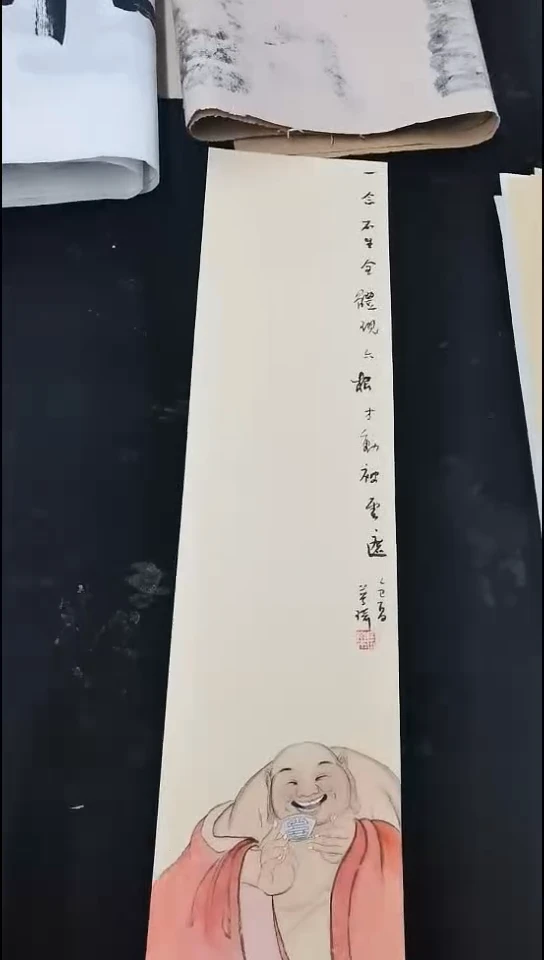 一念不生全體現六根才動被雲遮
乙巳夏